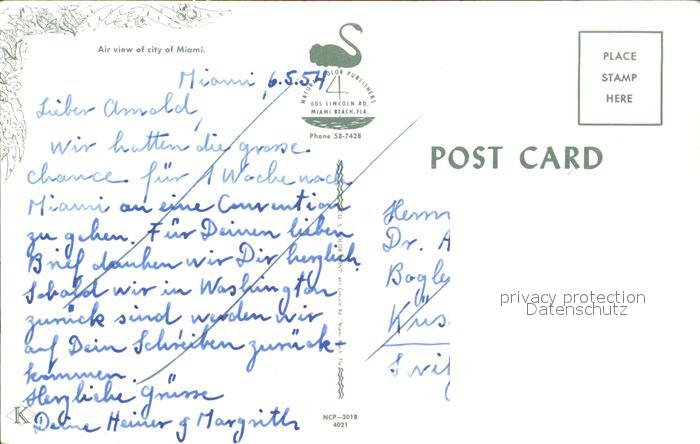 Air view of city of Miami.
NATURAL COLOR PUBLISHERS
605 LINCOLN RD.
MIAMI BEACH, FLA.
Phone 58-7428
PLACE
STAMP
HERE
POST CARD
Miami, 6.5.54
Lieber Arnold,
Wir hatten die grosse
chance für 1 Woche nach
Miami an eine Convention
zu gehen. Für Deinen lieben
Brief danken wir Dir herzlich.
Sobald wir in Washington
zurück sind werden wir
auf Dein Schreiben zurück-
kommen.
Herzliche Grüsse
Deine Heiner & Margrith
Herrn
Dr. A
Bogle
Küs
Swit
privacy protection
Datenschutz
K
NCP-3018
4021